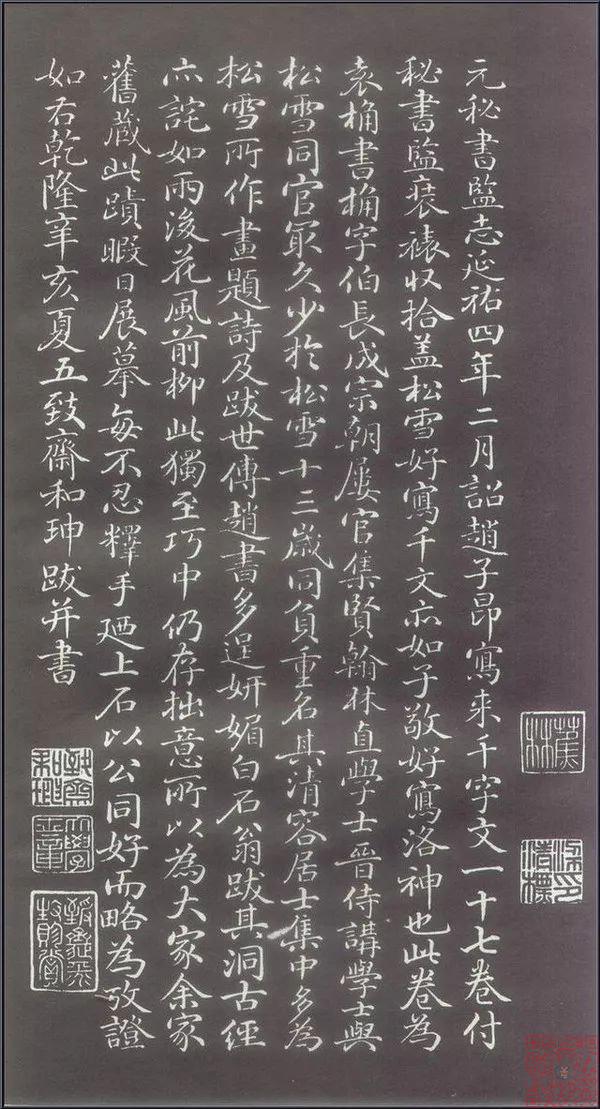 元秘書監志延祐四年二月詔趙子昂寫來千字文一十七卷付
秘書監裝褾収拾盖松雪好寫千文亦如子敬好寫洛神也此卷為
袁桷書桷字伯長成宗朝屢官集賢翰林直學士晉侍講學士與
松雪同官最久少於松雪十三歲同負重名其清容居士集中多為
松雪所作畫題詩及跋世傳趙書多逞妍媚白石翁跋其洞古經
亦詫如雨後花風前柳此獨至巧中仍存拙意所以為大家余家
舊藏此蹟暇日展摹每不忍釋手廼上石以公同好而略為攷證
如右乾隆辛亥夏五致齋和珅跋并書